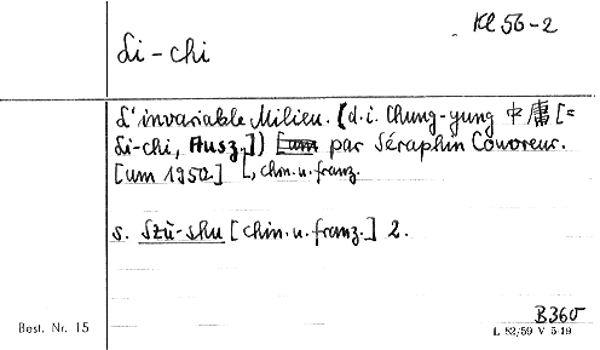 Kl 56-2
Li-chi
L'invariable Milieu. (d.i. Chung-yung 中庸 [=
Li-chi, Ausz.]) par Séraphin Couvreur.
[um 1950] [, chin. u. franz.
s. Szŭ-shu [chin. u. franz.] 2.
B360
Best. Nr. 15
L 82/59 V 5 19